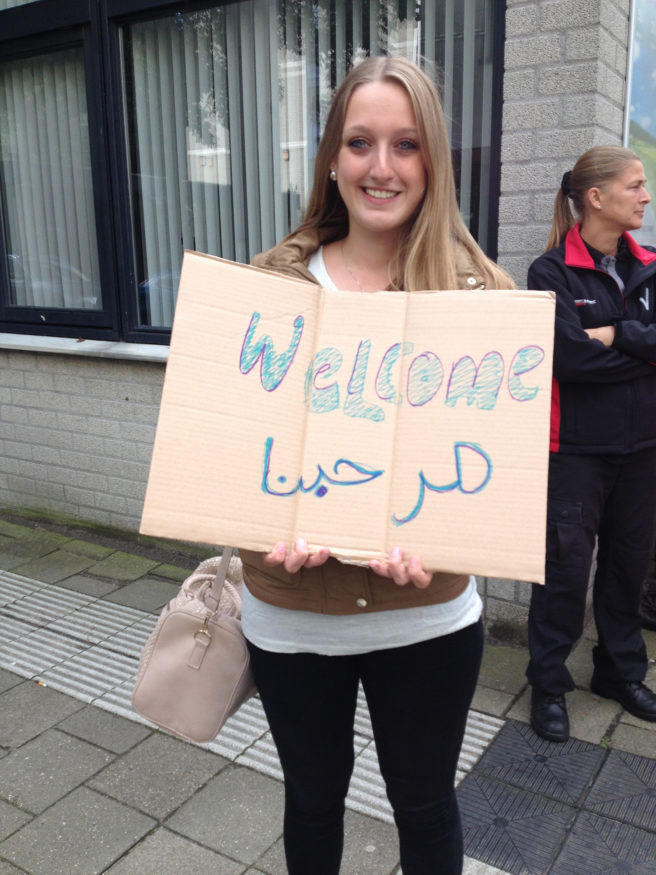 Welcome
مرحبا